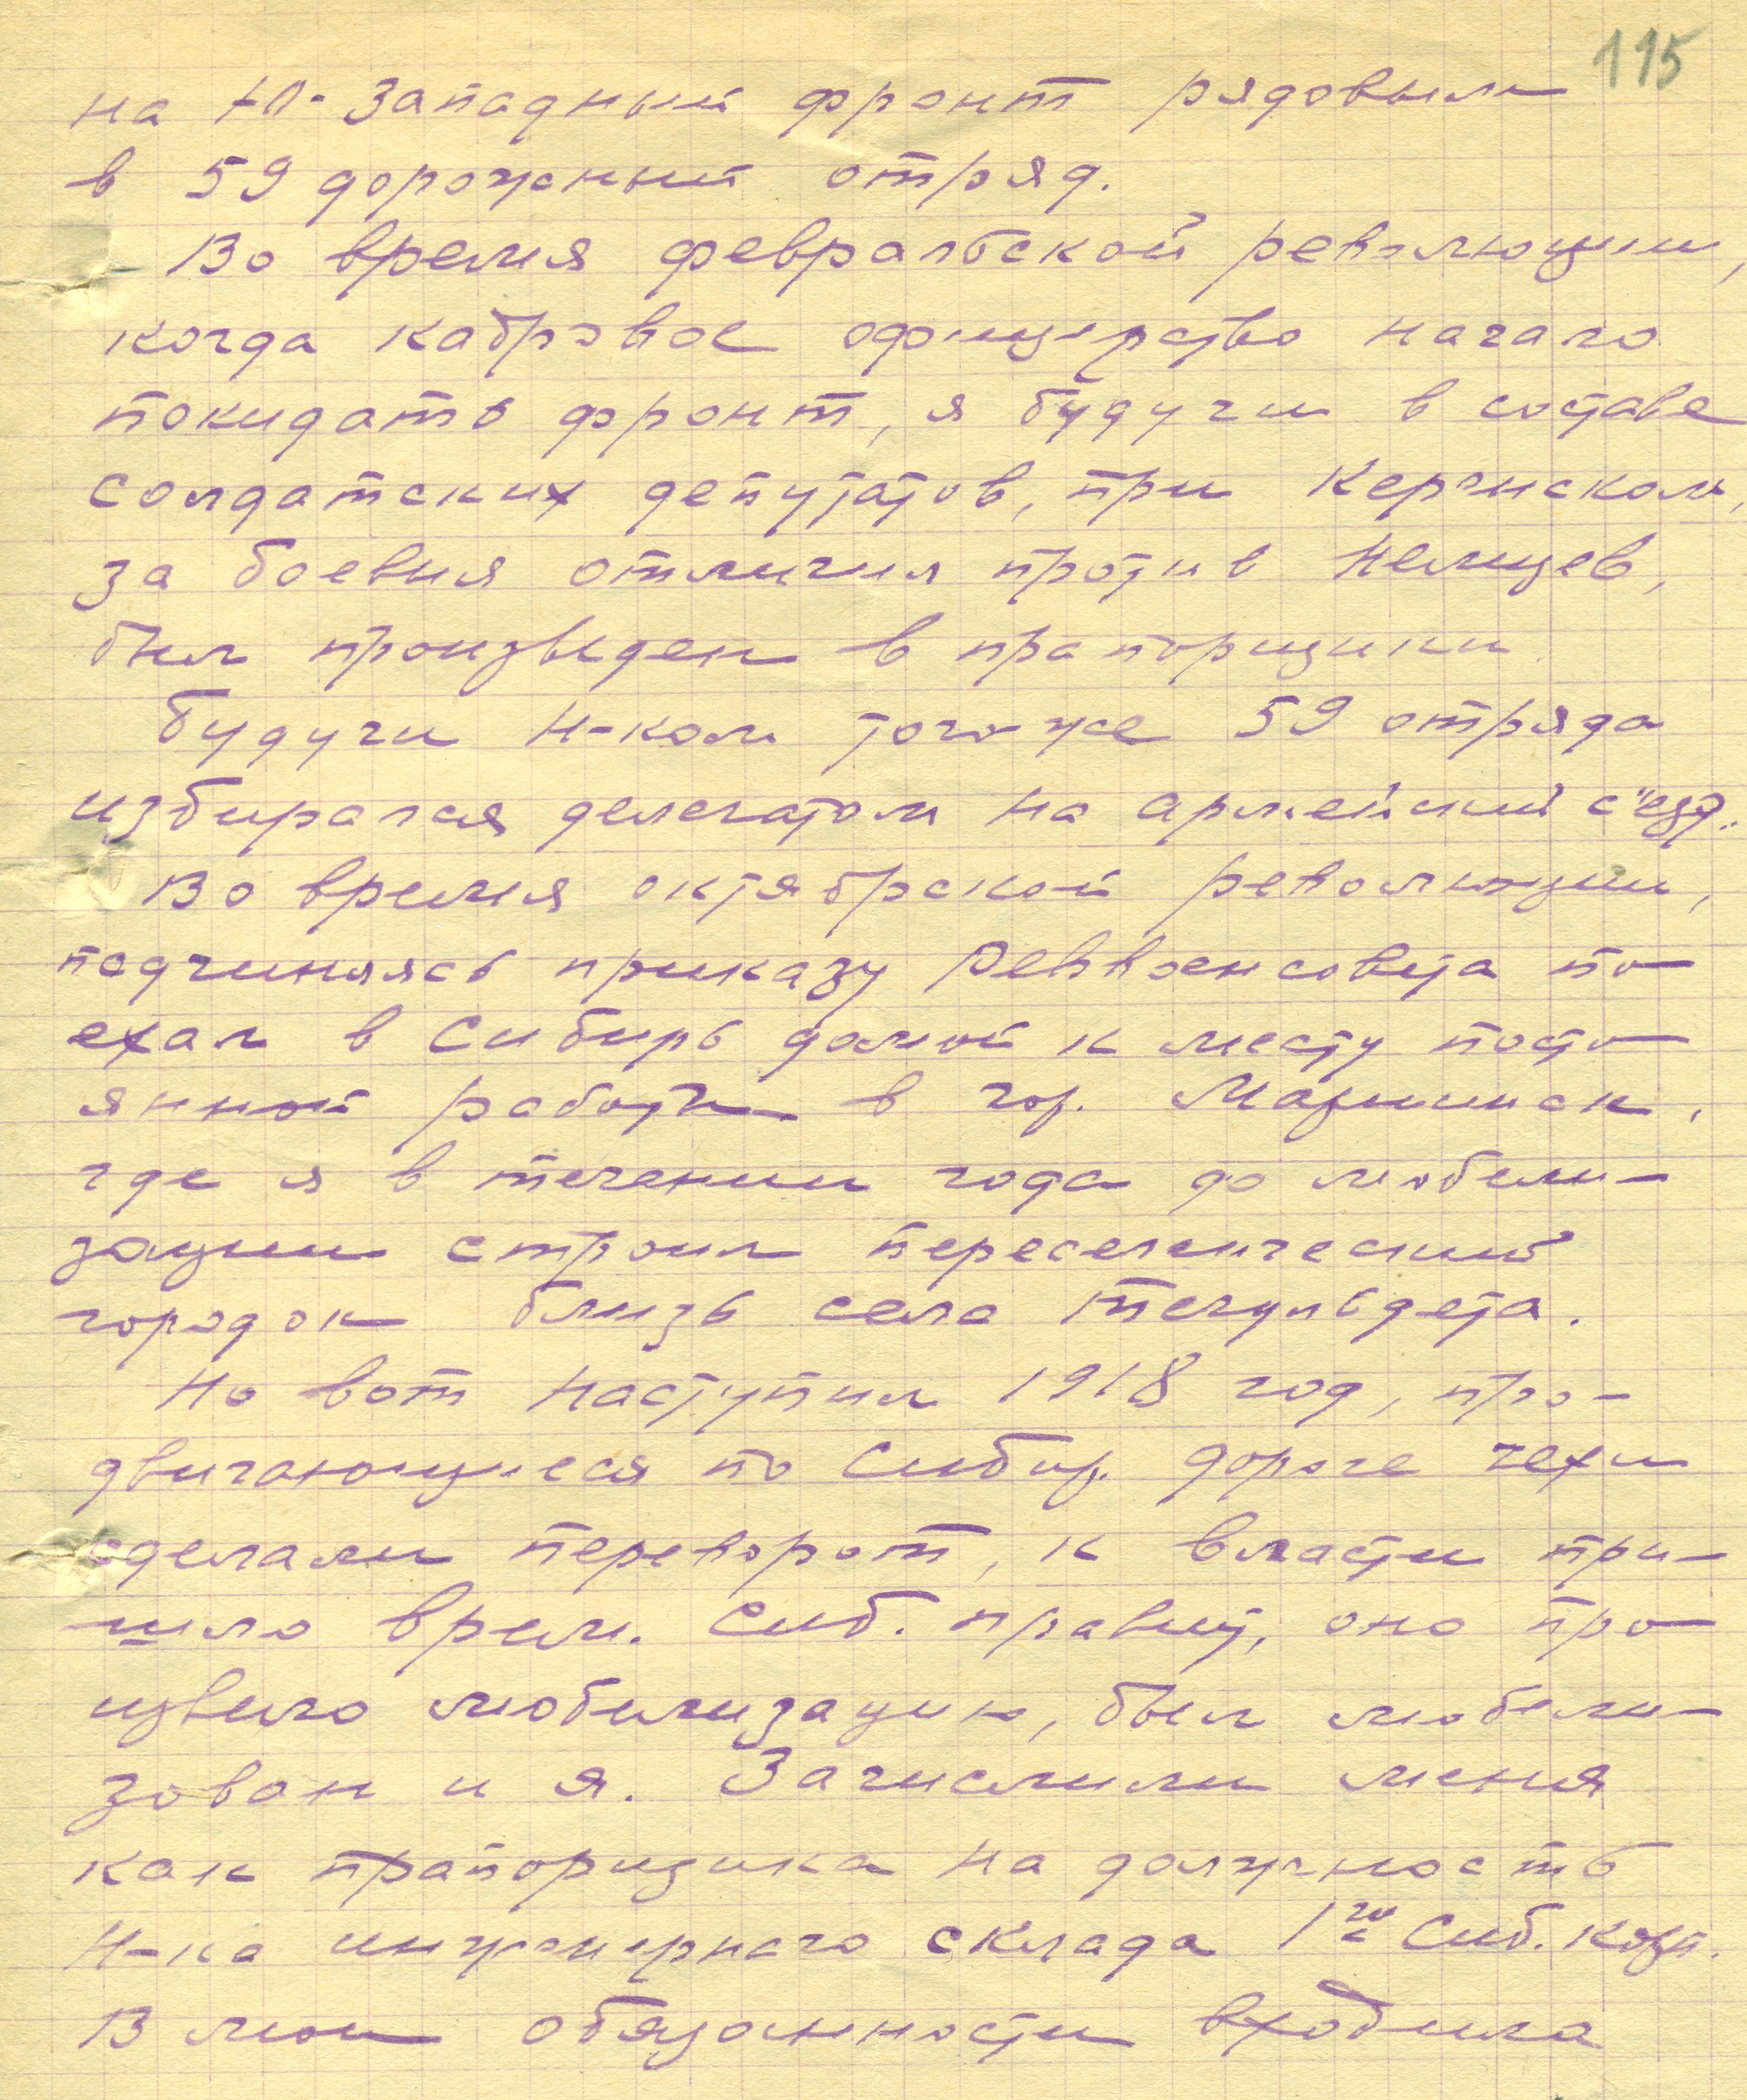 115
на Ю-Западный фронт рядовым
в 59 дорожный отряд.
Во время февральской революции,
когда кадровое офицерство начало
покидать фронт, я будучи в составе
солдатских депутатов, при Керенском,
за боевыя отличия против немцев,
был произведен в прапорщики.
Будучи н-ком того-же 59 отряда
избирался делегатом на армейский с"езд.
Во время октябрской революции,
подчиняясь приказу Реввоенсовета по-
ехал в Сибирь домой к месту посто-
янной работы в гор. Мариинск,
где я в течении года до мобили-
зации строил переселенческий
городок близь села Тегульдета.
Но вот наступил 1918 год, про-
двигающиеся по Сибир. дороге чехи
сделали переворот, к власти при-
шло врем. Сиб. правит, оно про-
извело мобилизацию, был мобили-
зован и я. Зачислили меня
как прапорщика на должность
Н-ка инженерного склада 1го Сиб. корп.
В мои обязанности входила